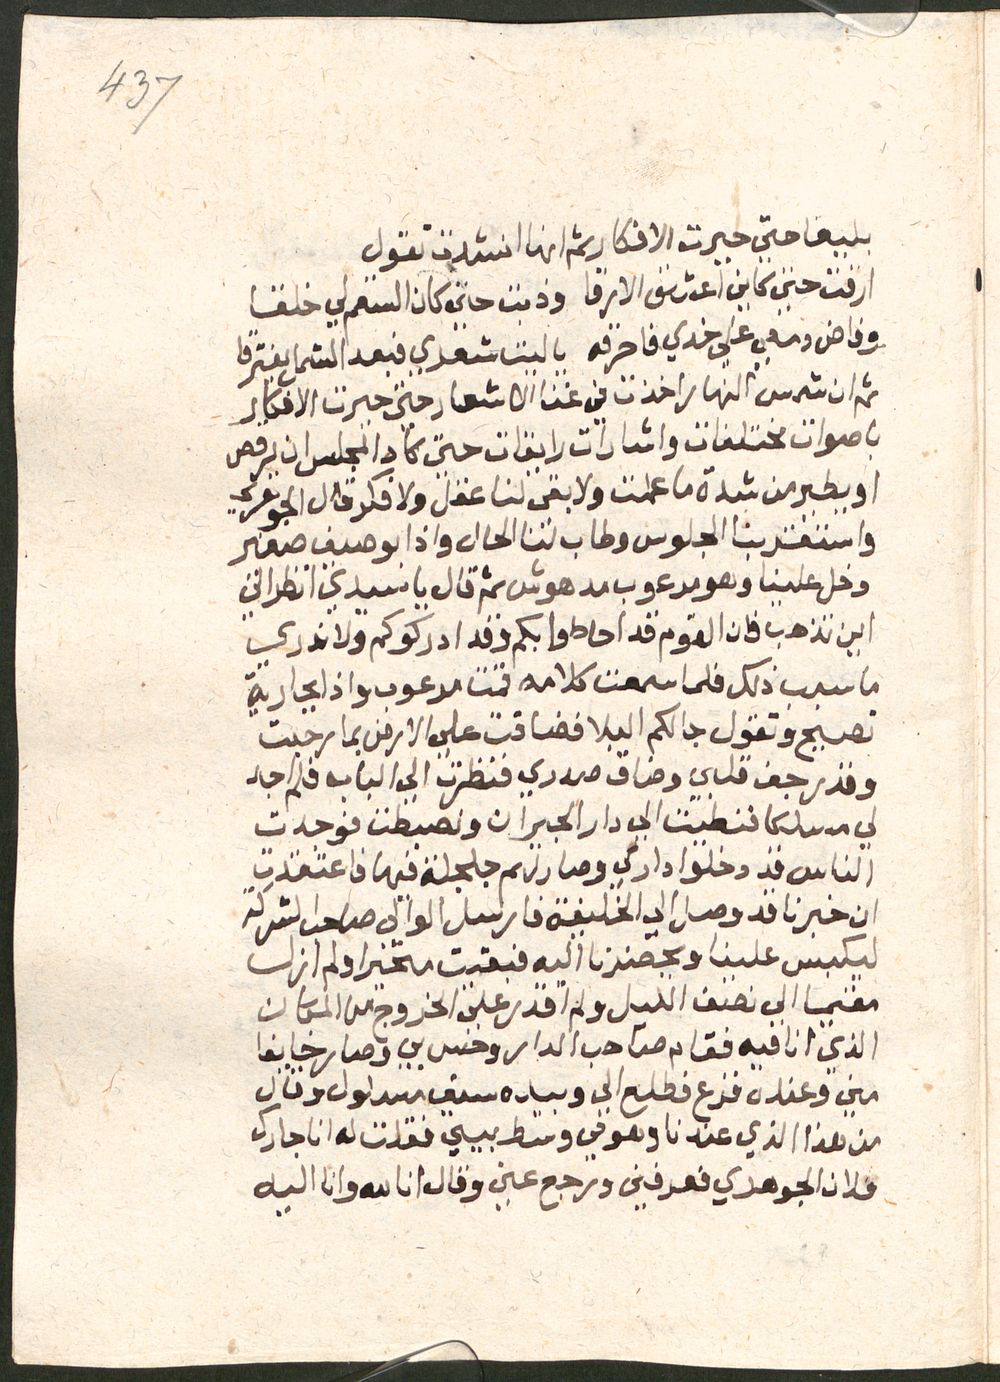 437
بليغا حتي حيرت الافكار ثم انها انشدت تقول
ارقت حتي كاني اعشق الارقا وذبت حتي كان السقم لي خلقا
وفاض دمعي علي خدي فاحرقه ياليت شعري فبعد الشمل يفترقا
ثم ان شمس النهار اخذت في غنا الاشعار حتي حيرت الافكار
باصوات مختلفات واشارات رايقات حتي كاد المجلس ان يرقص
او يطير من شدة ما عملت ولا بقي لنا عقل ولا فكر قال الجوهري
واستقر بنا الجلوس وطاب لنا الحال واذا بوصيف صغير
دخل علينا وهو مرعوب مدهوش ثم قال يا سيدي انظر الي
اين تذهب فان القوم قد احاطوا بكم وقد ادركوكم ولا ندري
ما سبب ذلك فلما سمعت كلامه قمت مرعوب واذا بجارية
تصيح وتقول جالكم البلا فضاقت علي الارض بما رحبت
وقد رجف قلبي وضاق صدري فنظرت الي الباب فلم اجد
لي مسلكا فنطيت الي دار الجيران و فوجدت
الناس قد دخلوا داري وصار لهم جلجلة فيها فاعتقدت
ان خبرنا قد وصل الي الخليفة فارسل الوالي صاحب الشركة
ليكبس علينا ويحضرنا اليه فبقيت متحيرا ولم ازل
مقيما الي نصف الليل ولم اقدر علي الخروج من المكان
الذي انا فيه فقام صاحب الدار وحس بي وصار خايفا
مني وعنده فزع فطلع الي وبيده سيف مسلول وقال
من هذا الذي عندنا وهو في وسط بيتي فقلت له انا جارك
فلان الجوهري فعرفني ورجع عني وقال انا لله وانا اليه